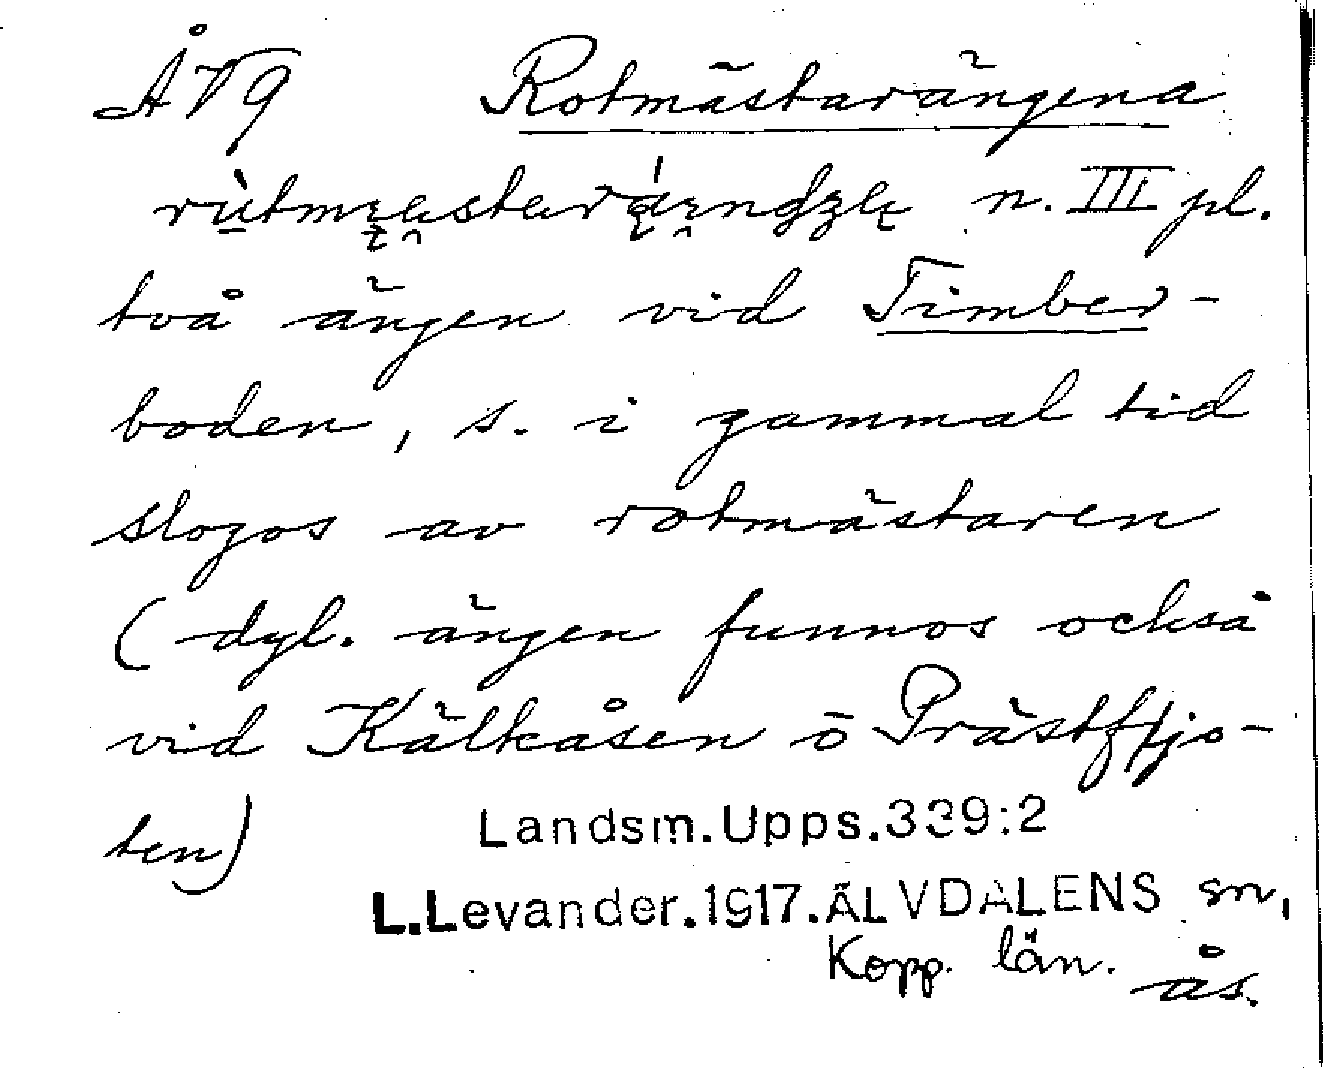 ÅVg Rotmästarängena
n. III pl.
två ängen vid Timber-
boden, s. i gammal tid
slogos av rotmästaren
(dyl. ängen funnos också
vid Kältkåsen o Prästfjo-
ten)
Landsm.Upps.339:2
L.Levander.1917.ÄLVDALENS sn,
Kopp. län. ås.